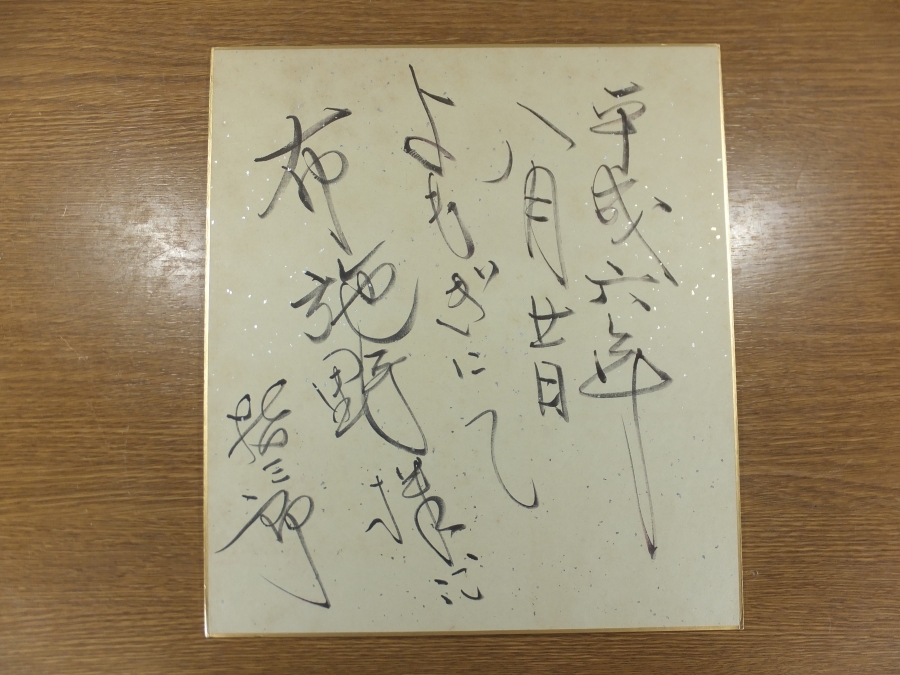 平成六年
八月廿日
よもぎにて
布施野様に
哲三郎